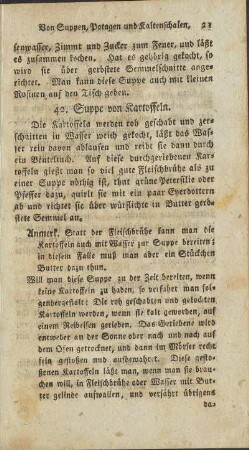 Von Suppen, Potagen und Kaltenschalen, 21
senwasser, Zimmt und Zucker zum Feuer, und läßt
es zusammen kochen. Hat es gehörig gekocht, so
wird sie über geröstete Semmelschnitte ange
richtet. Man kann diese Suppe auch mit kleinen
Rosinen auf den Tisch geben.
40. Suppe von Kartoffeln.
Die Kartoffeln werden roh geschabt und zer-
schnitten in Wasser weich gekocht, läßt das Was
ser rein davon ablaufen und reibt sie dann durch
ein Beuteltuch. Auf diese durchgeriebenen Kar
toffeln gießt man so viel gute Fleischbrühe als zu
einer Suppe nöthig ist, thut grüne Petersilie oder
Pfeffer dazu, quirlt sie mit ein paar Eyerdottern
ab und richtet sie über würflichte in Butter gerö-
stete Semmel an.
Anmerk. Statt der Fleischbrühe kann man die
Kartoffeln auch mit Wasser zur Suppe bereiten;
in diesem Falle muß man aber ein Stückchen
Butter dazu thun.
Will man diese Suppe zu der Zeit bereiten, wenn
keine Kartoffeln zu haben, so verfahrt man sol-
gendergestalt: Die roh geschabten und gekochten
Kartoffeln werden, wenn sie kalt geworden, auf
einem Reibeisen gerieben. Das Geriebene wird
entweder an der Sonne oder nach und nach auf
dem Ofen getrocknet, und dann im Mörser recht
fein gestoßen und aufbewahrt. Diese gesto-
ßenen Kartoffeln läßt man, wenn man sie brau-
chen will, in Fleischbrühe oder Wasser mit But-
ter gelinde aufwallen, und verfährt übrigens
da-